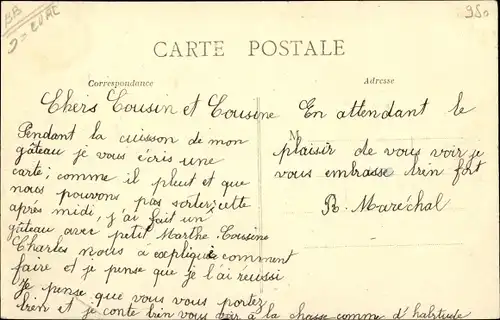 BB
35.
CARTE POSTALE
Correspondance
Adresse
M
Chers Cousin et Cousine
Pendant la cuisson de mon
gâteau je vous écris une
carte; comme il pleut et que
nous pouvons pas sortir cette
après midi, j'ai fait un
gâteau avec petit Marthe. Cousine
Charles nous à expliquée comment
faire et je pense que je l'ai réussi
Je pense que vous vous portez
bien et je conte bien vous voir à la chasse comme d'habitude
En attendant le
plaisir de vous voir je
vous embrasse bien fort
R. Maréchal